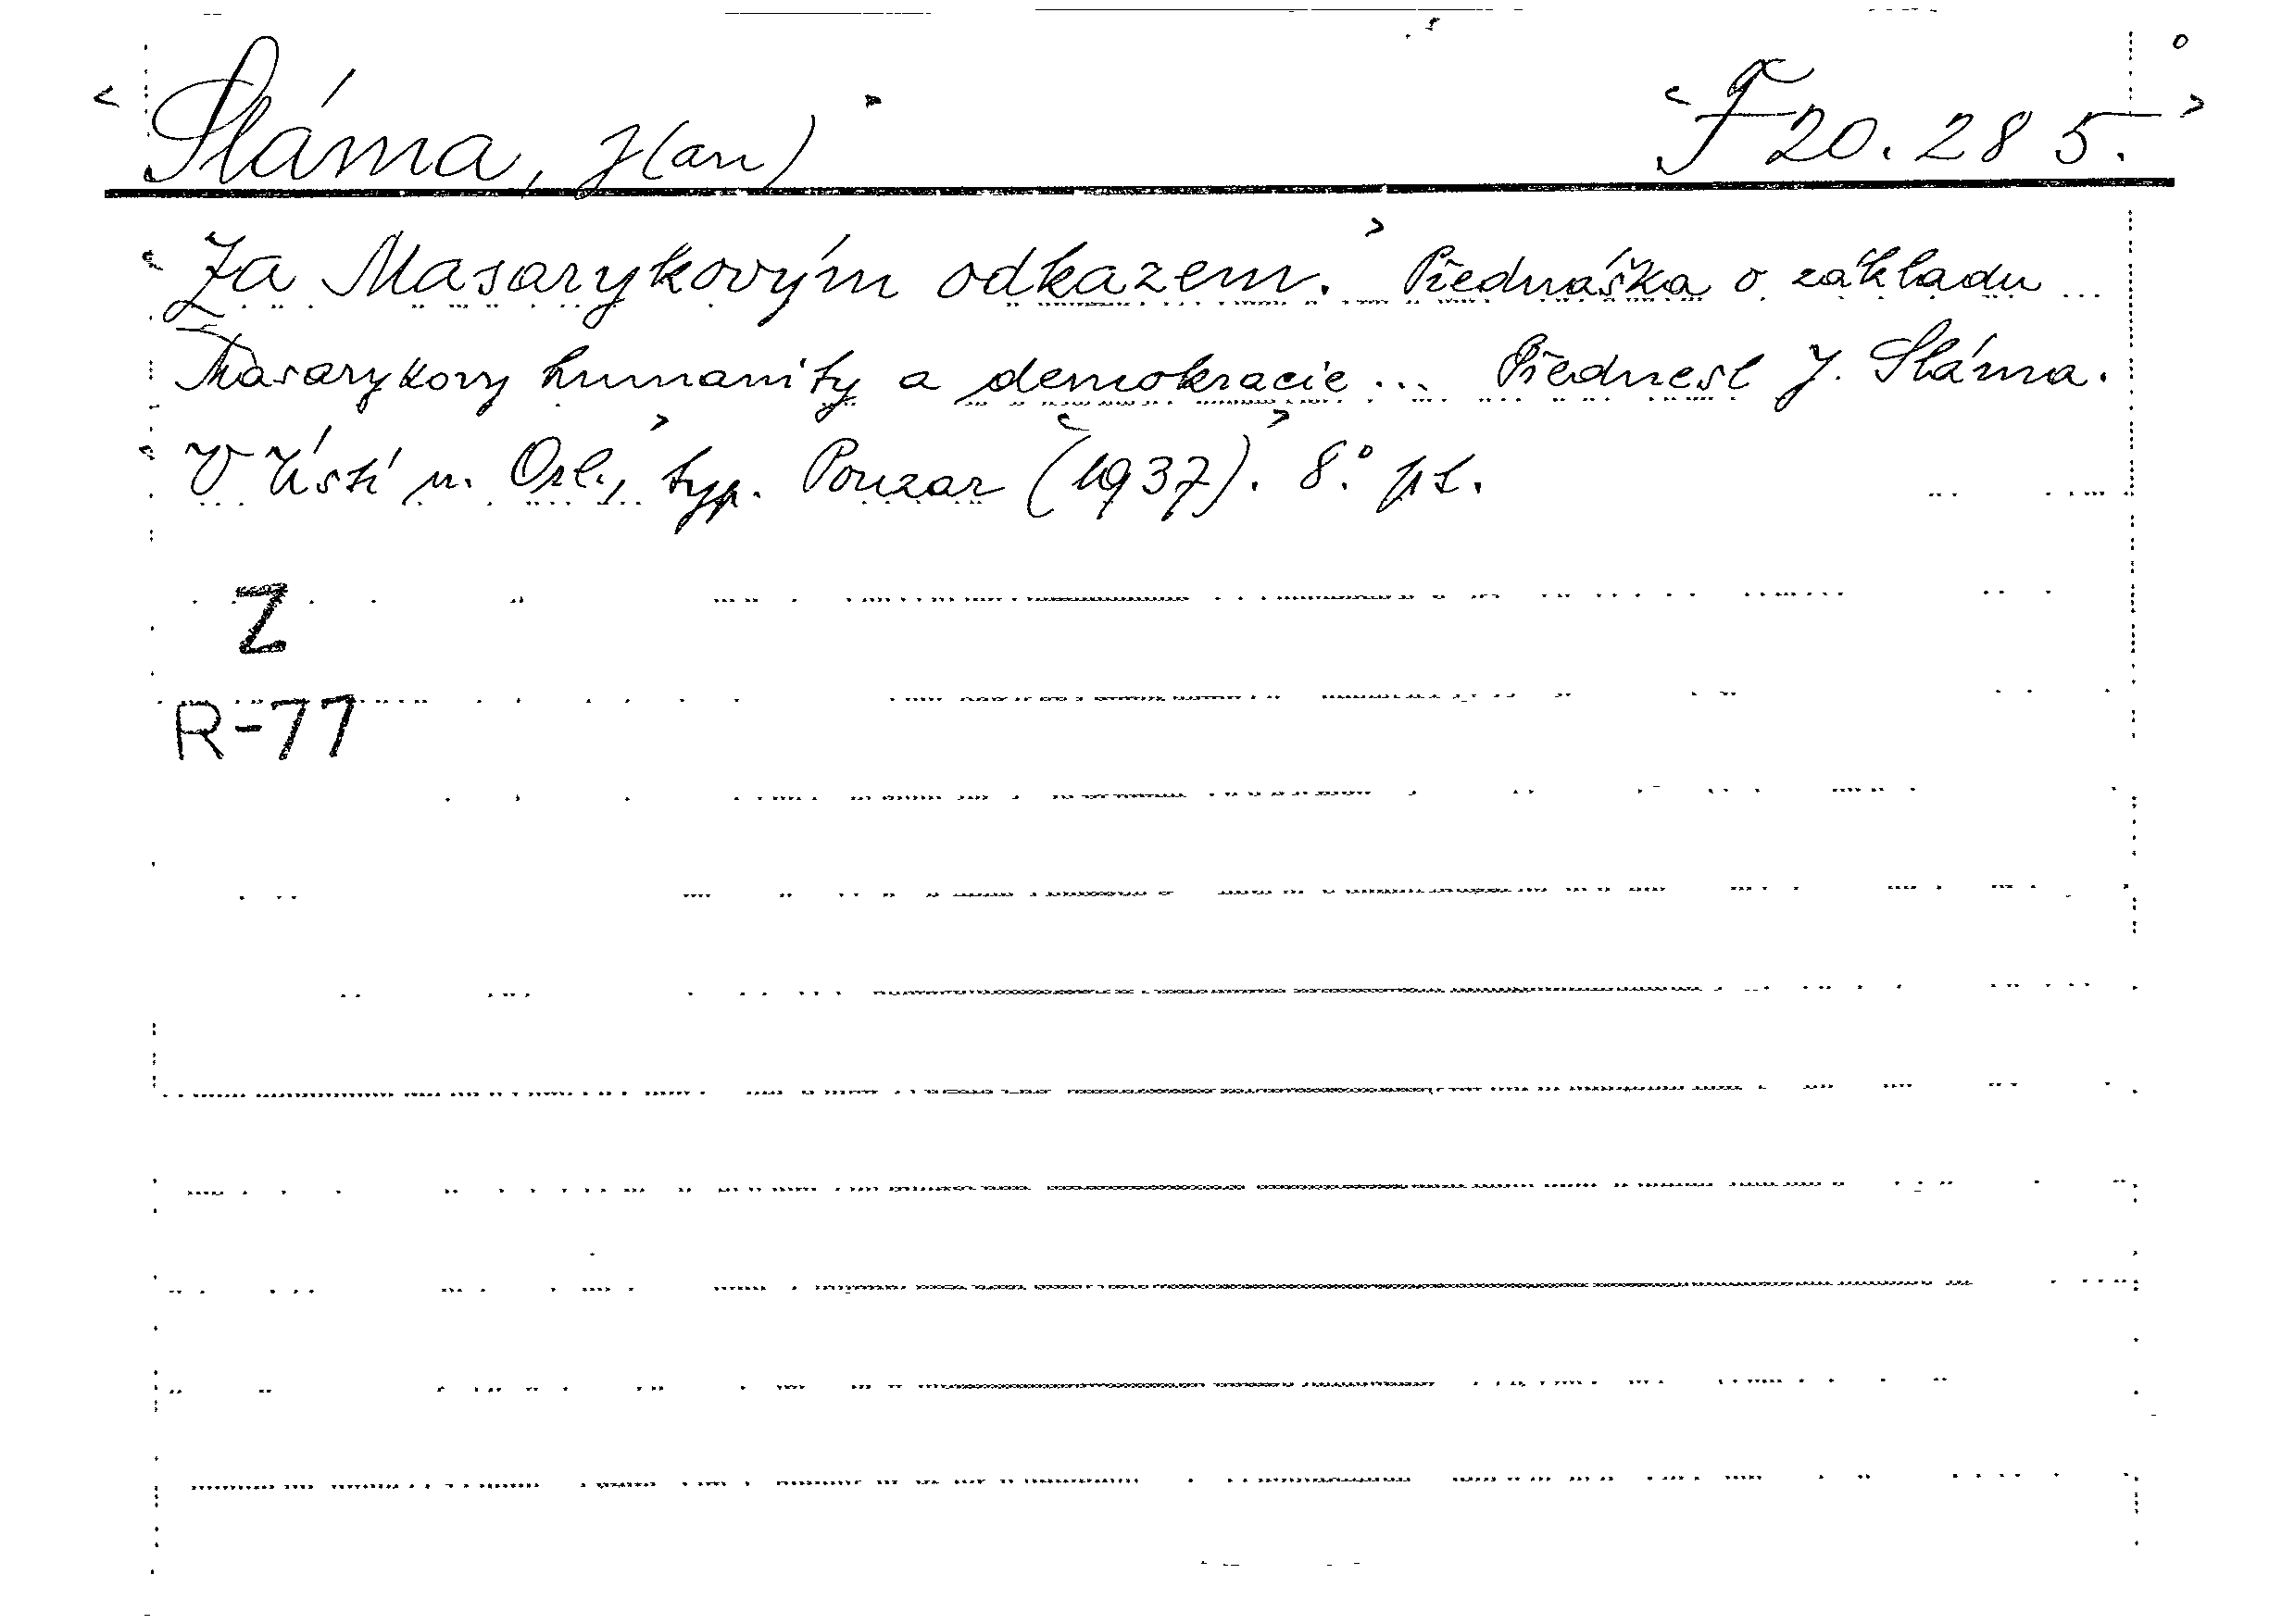 Sláma, J(an) F 20.285.
Za Masarykovým odkazem. Přednáška o základu
Masarykovy humanity a demokracie... Přednesl J. Sláma.
V Ústí n. Orl., typ. Pouzar (1937). 8°.
Z
R-77